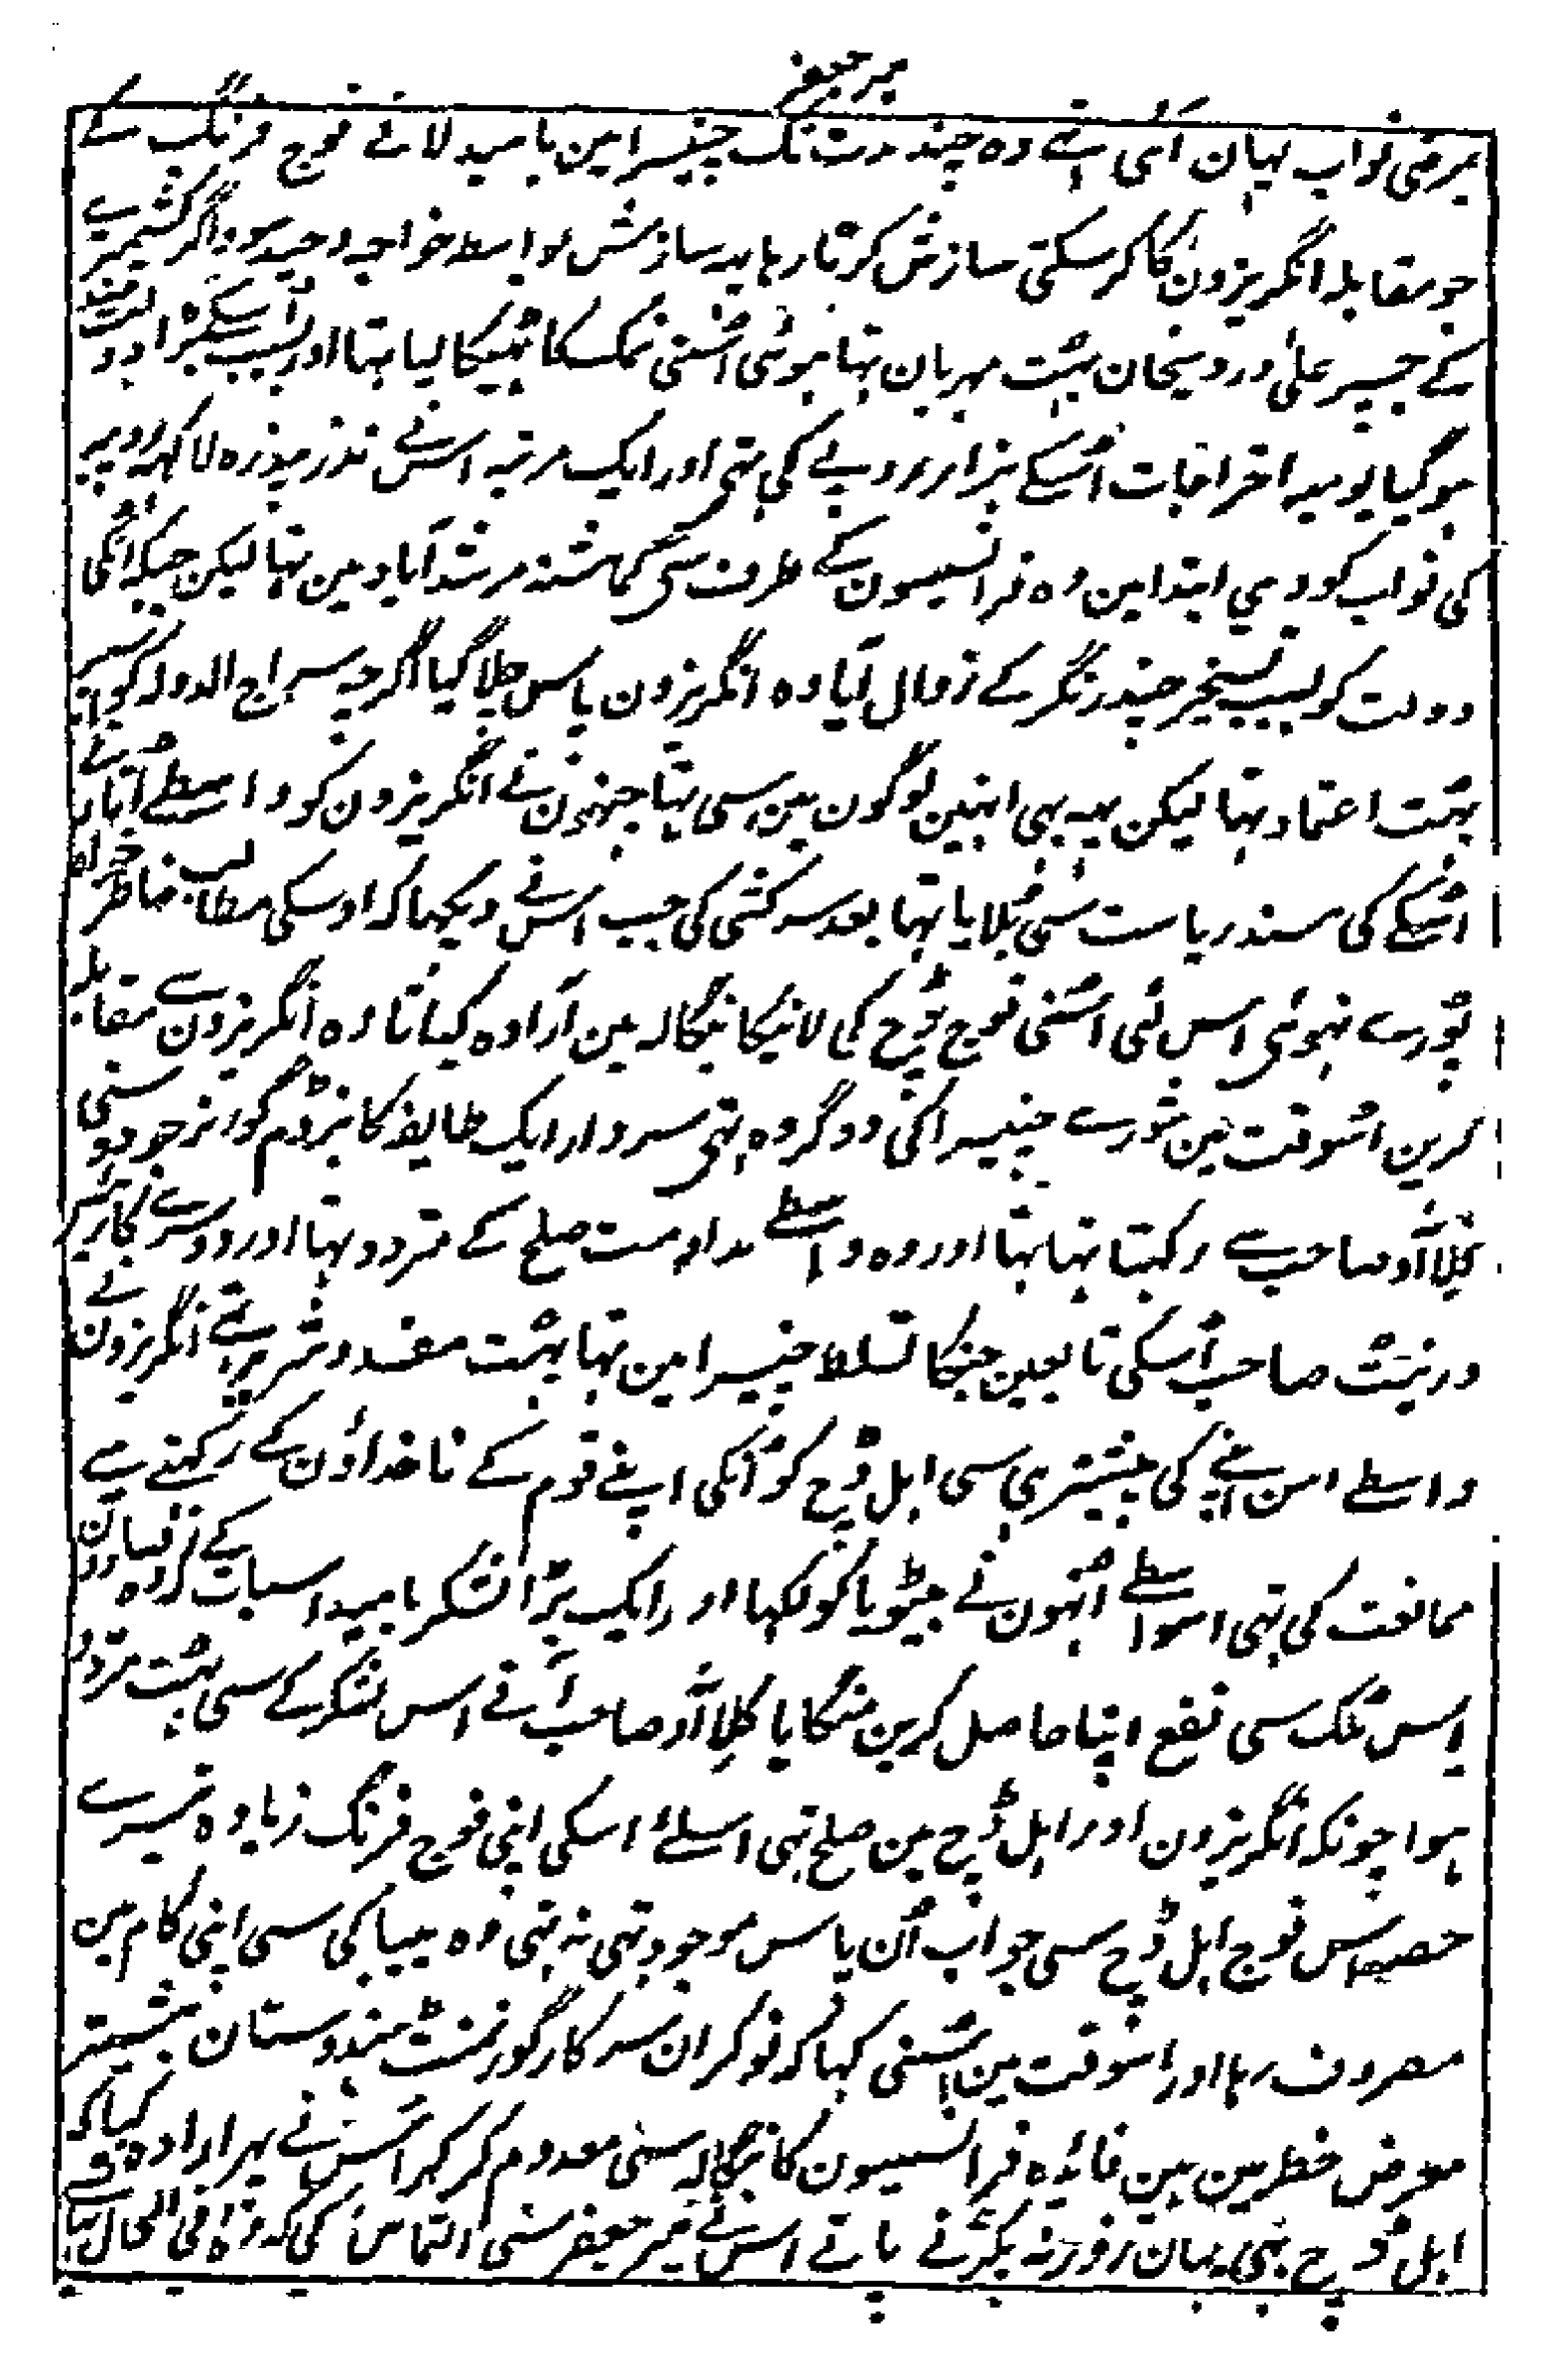 میر جعفر
مرضی نواب یہان آئی تہے وہ چند مدت تک چنیسرا مین بامید لانے فوج فرنگ کے
جو مقابلہ انگریزون کا کر سکتی سازش کرتا رہا یہ سازش بواسطہ خواجہ وحید سوداگر کشمیر سے
کے جسپر علی وردیخان بہت مہربان تہا ہوئی اُسنی نمک کا ٹہیکا لیا تہا اور بسبب اسکے بڑا دولت مند
ہو گیا یومیہ اخراجات اُسکے ہزار روپے کی تہی اور ایک مرتبہ اس نے نذر پندرہ لاکہہ روپیہ
کی نواب کو دی ابتدا مین وہ فرانسیسون کے طرف سی گماشتہ مرشد آباد مین تہا لیکن جبکہ انکی
دولت کو بسبب تسخیر چندرنگر کے زوال آیا وہ انگریزون پاس چلا گیا اگرچہ سراج الدولہ کو اُسپر
بہت اعتماد تہا لیکن یہہ بہی انہین لوگون مین سی تہا جنہون نے انگریزون کو واسطے اُتارنے
اُسکے کی مسند ریاست سی بُلایا تہا بعد سرکشی کی جب اس نے دیکہا کہ اوسکی مطالب خاطر خواہ
پورے نہوئی اس نی اُسنی فوج ڈچ کی لانیکا بنگالہ مین ارادہ کیا تا وہ انگریزون سے مقابلہ
کرین اسوقت مین شورے چنیسرا کی دو گروہ تہی سردار ایک طایفہ کا بزڈم گوانر جو دوستی
کلااؤ صاحب سے رکہتا تہا تہا اور وہ واسطے مداومت صلح کے متردد تہا اور دوسرے کا رئیس
ورنیٹ صاحب اُسکی تابعین جنکا تسلط چنیسرا مین تہا بہت مفسد و شریر تہے انگریزون نے
واسطے امن اپنے کی پیشتر ہی سی اہل ڈچ کو انکی اپنے قوم کے ناخداؤن کے رکہنے سے
ممانعت کی تہی اسواسطے اُنہون نے بیٹویا کو لکہا اور ایک بڑا لشکر بامید اسبات کے کہ وہ
اِس مُلک سی نفع اپنا حاصل کرین منگایا کلااؤ صاحب آنے اس لشکر کے سی بہت متردد
ہوا چونکہ انگریزون اور اہل ڈچ مین صلح تہی اسلئے اسکی اپنی فوج فرنگ زیادہ تیسرے
حصہ اس فوج اہل ڈچ سی جو اب اُن پاس موجود تہی نہ تہی وہ بیباکی سی اپنی کام مین
مصروف رہا اور اسوقت مین اُسنی کہا کہ نوکران سرکار گورنمنٹ ہندوستان بیشتر
معرض خطر مین ہین فائدہ فرانسیسون کا بنگالہ سی معدوم کر کر اُس نے یہہ ارادہ کیا کہ
اہل ڈچ بہی یہان زور نہ پکڑنے پاتے اس نے میر جعفر سی التماس کی کہ وہ فی الحال